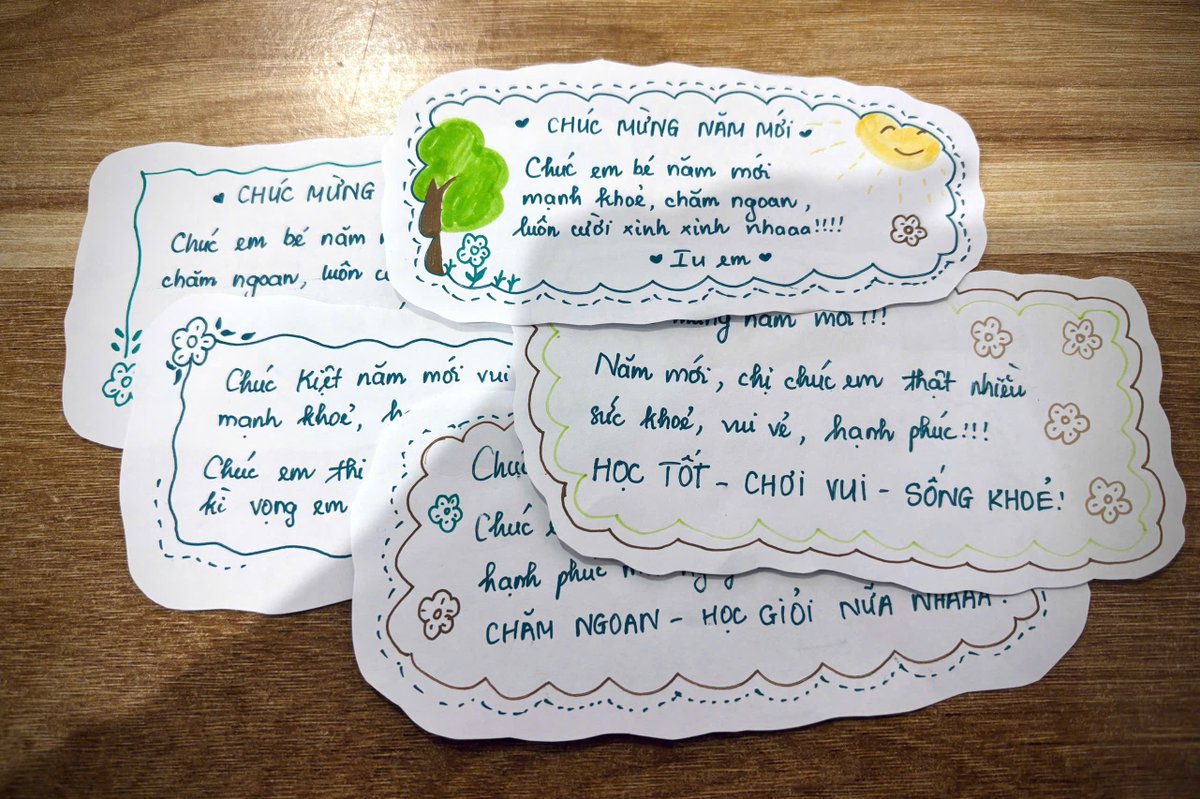 CHÚC MỪNG NĂM MỚI
Chúc em bé năm mới
mạnh khoẻ, chăm ngoan,
luôn cười xinh xinh nhaaa!!!!
Iu em
CHÚC MỪNG
Chúc em bé năm
chăm ngoan, luôn
Chúc Kiệt năm mới vui
mạnh khoẻ,
Chúc em thi
kì vọng em
mừng năm mới!!!
Năm mới, chị chúc em thật nhiều
sức khoẻ, vui vẻ, hạnh phúc!!!
HỌC TỐT - CHƠI VUI - SỐNG KHOẺ!
Chúc
Chúc
hạnh phúc
CHĂM NGOAN - HỌC GIỎI NỮA NHAAA!